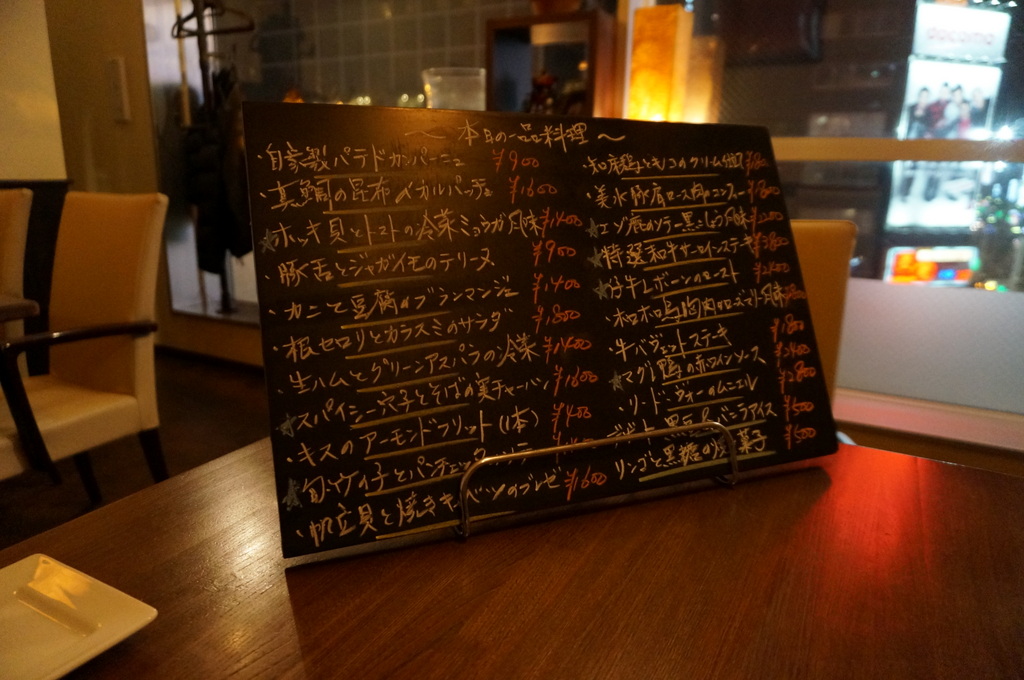 ～本日の一品料理～
・自家製パテドカンパーニュ ¥900
・真鯛の昆布〆カルパッチョ ¥1600
☆ホッキ貝とトマトの冷菜ミョウガ風味 ¥1400
・豚舌とジャガイモのテリーヌ ¥900
・カニと豆腐のブランマンジェ ¥1400
・根セロリとカラスミのサラダ ¥1800
・生ハムとグリーンアスパラの冷菜 ¥1400
☆スパイシー穴子とそばの実チャーハン ¥1600
・キスのアーモンドフリット(1本) ¥400
☆旬
・帆立貝と焼きキャベツのブレゼ ¥1600
・知床鶏とキノコのクリーム
・美水豚肩ロース肉のコンフィ
☆エゾ鹿のソテー黒こしょう風味 ¥2200
☆特選和牛サーロインステーキ ¥3800
☆仔牛Lボーンのロースト ¥2400
・ホロホロ鳥胸肉ローズマリー風味
・牛バヴェットステーキ ¥1800
☆マグレ鴨の赤ワインソース ¥2400
・リードヴォーのムニエル ¥2800
黒豆 バニラアイス ¥500
リンゴと黒糖の 菓子 ¥600
docomo